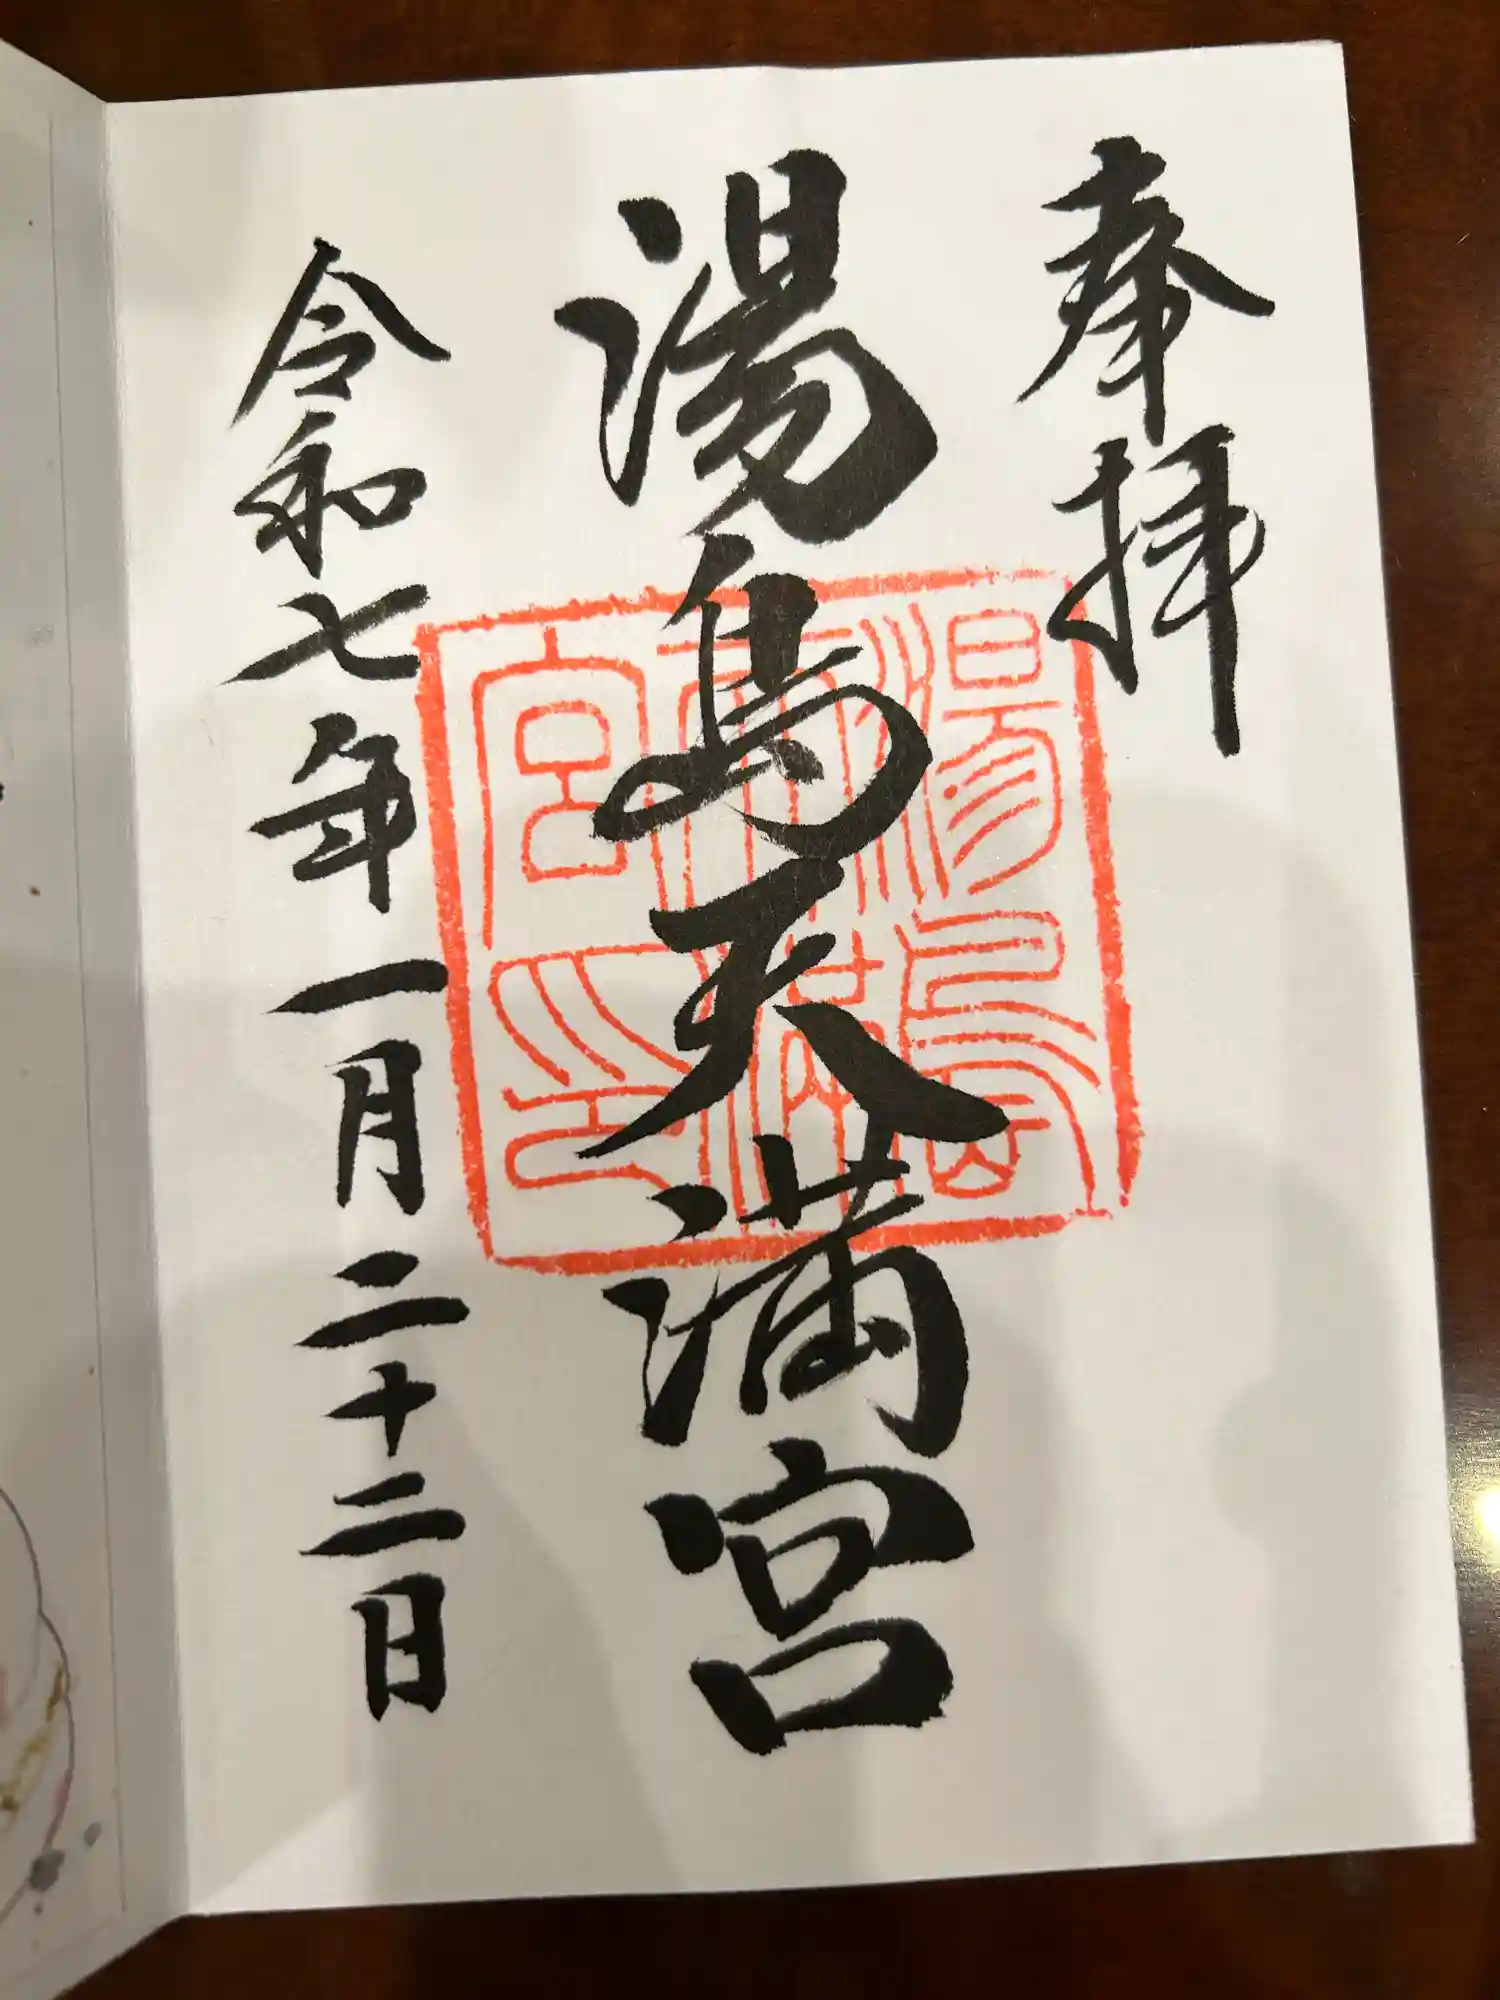 奉拝
湯島天満宮
令和七年一月二十二日
湯島
天満
宮印